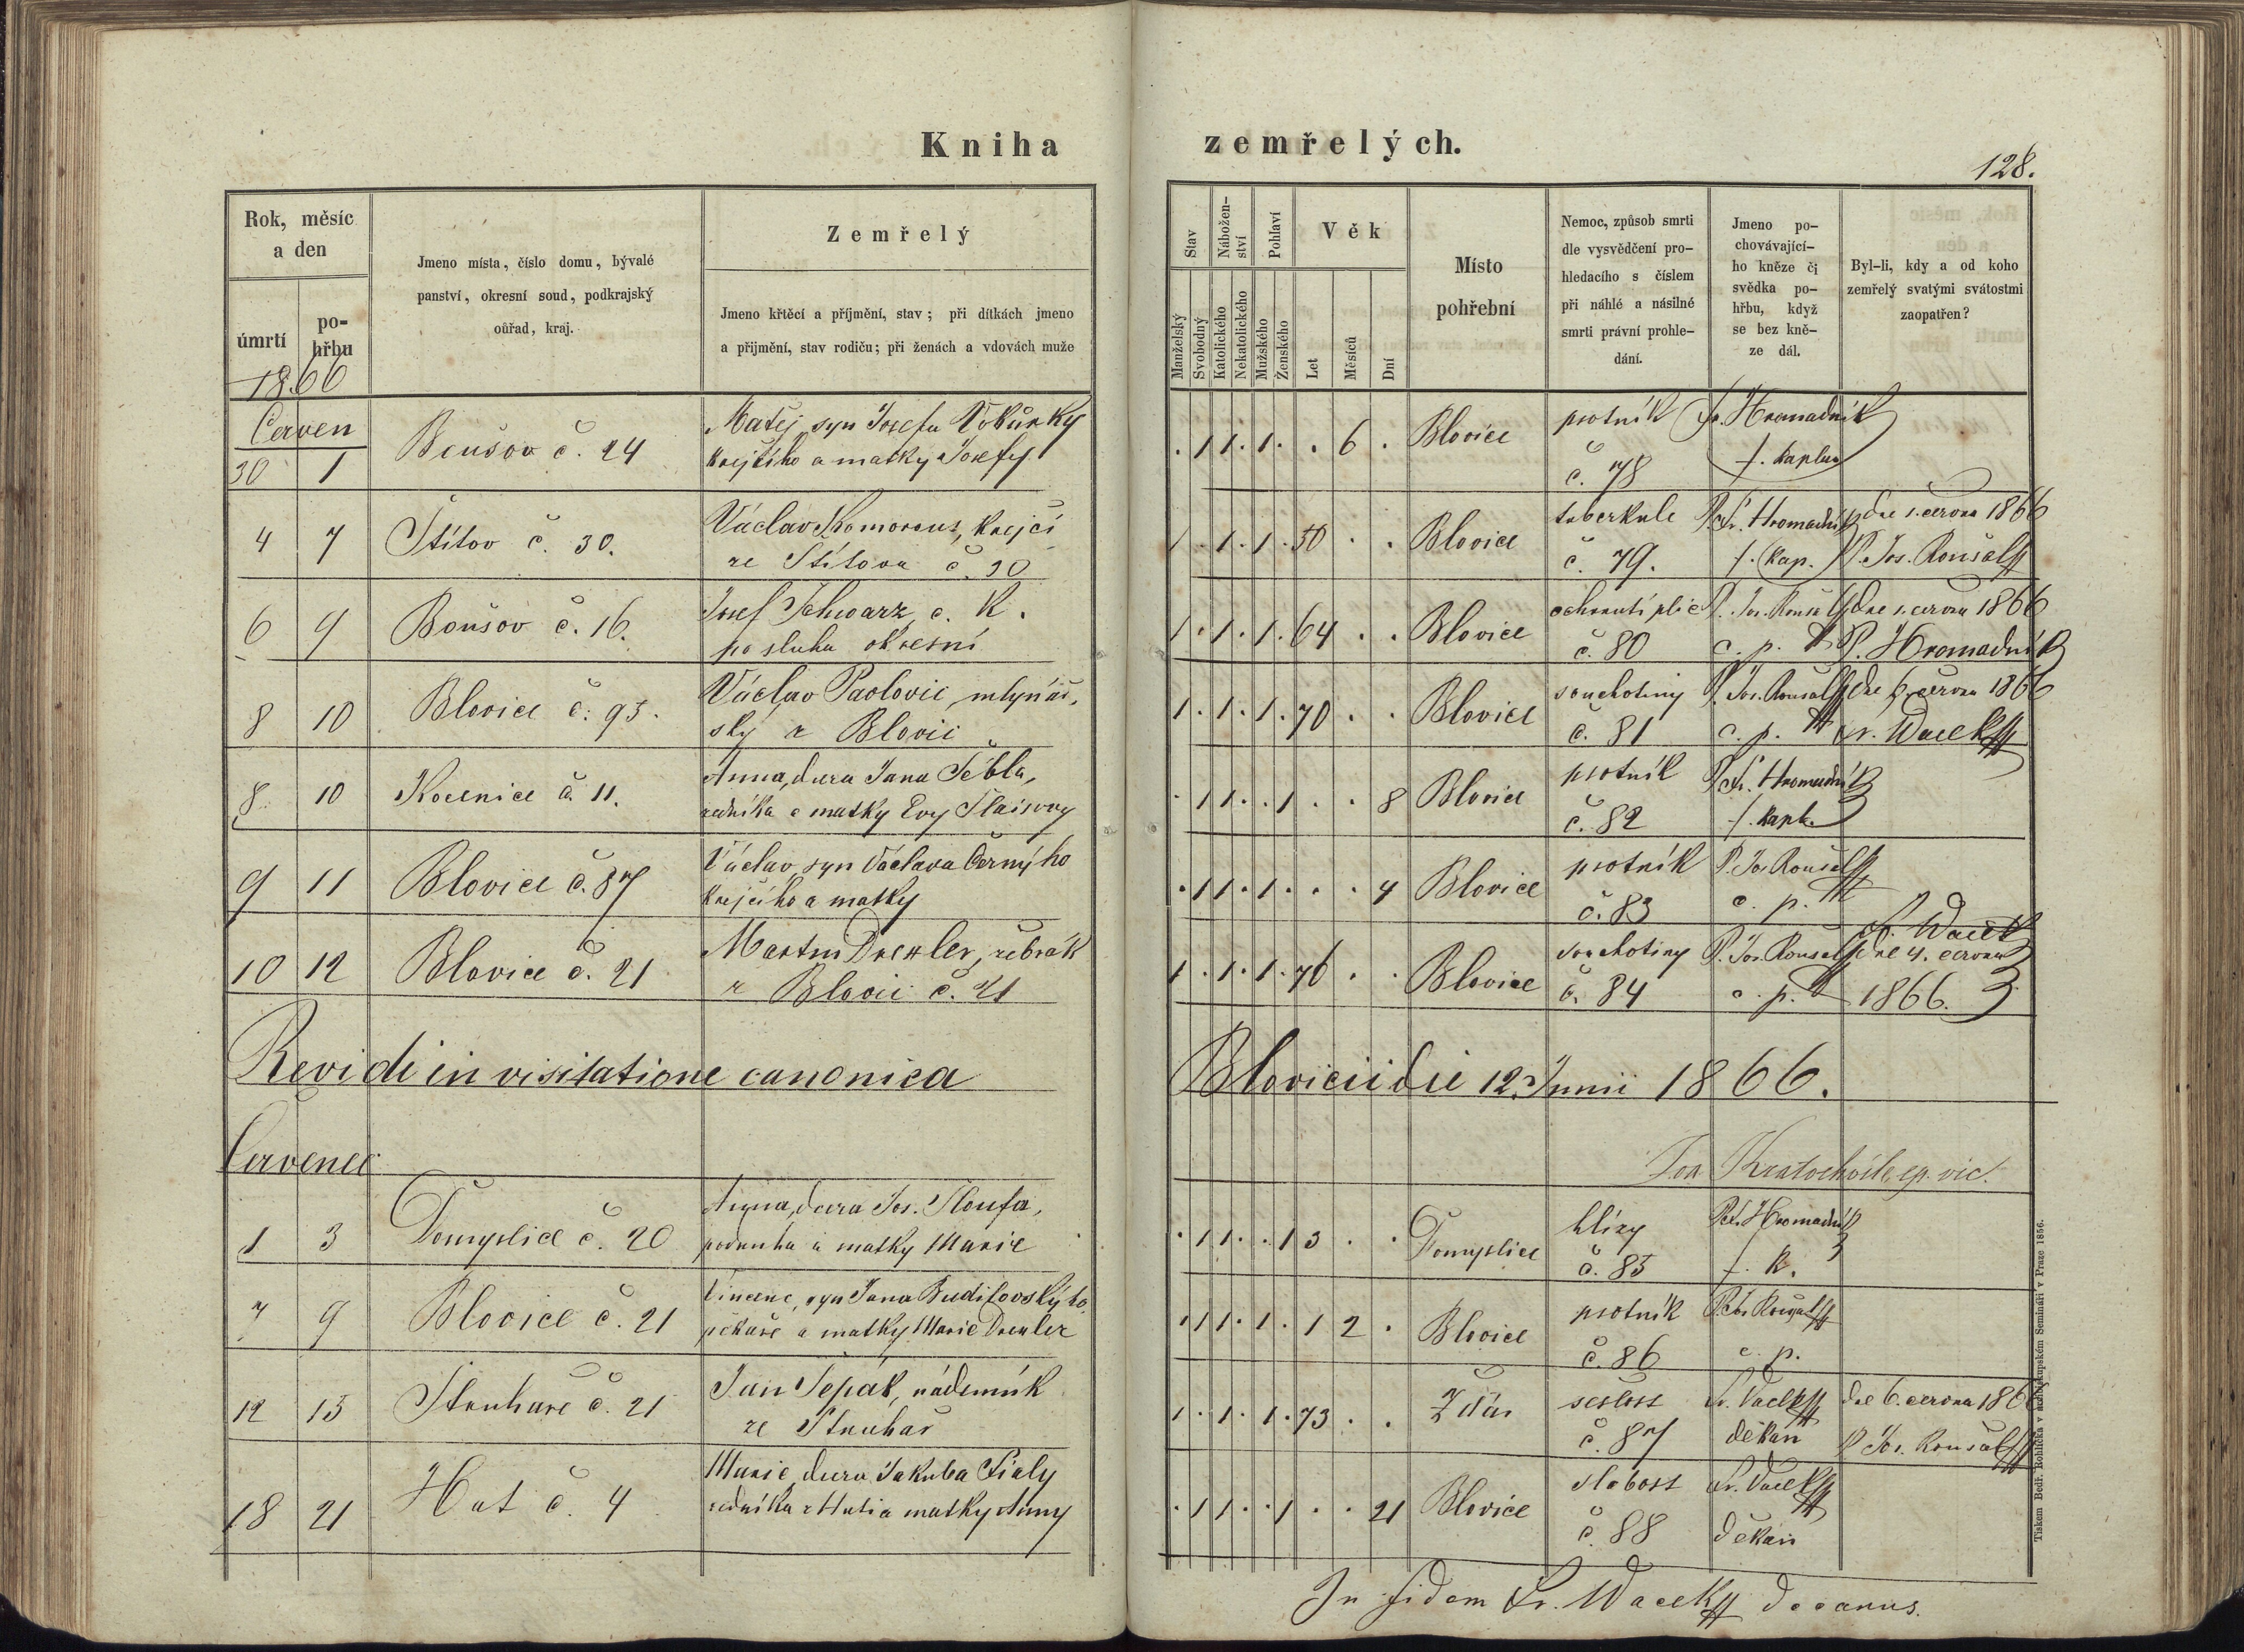 Kniha zemřelých.
128.
Rok, měsíc
a den
úmrtí
po-
hřbu
1866
Jmeno místa, číslo domu, bývalé
panství, okresní soud, podkrajský
ouřad, kraj.
Zemřelý
Jmeno křtěcí a příjmění, stav; při dítkách jmeno
a přijmění, stav rodičů; při ženách a vdovách muže
Stav
Manželský
Svobodný
Nábožen-
ství
Katolického
Nekatolického
Pohlaví
Mužského
Ženského
Věk
Let
Měsíců
Dní
Místo
pohřební
Nemoc, způsob smrti
dle vysvědčení pro-
hledacího s číslem
při náhlé a násilné
smrti právní prohle-
dání.
Jmeno po-
chovávající-
ho kněze či
svědka po-
hřbu, když
se bez kně-
ze dál.
Byl-li, kdy a od koho
zemřelý svatými svátostmi
zaopatřen?
Červen
30 1 č. 24 Matěj, syn Josefa
krejčího a matky Josefy
. 1 1 . 1 . . 6 . Blovice psotník č. 78 Fr. Hromadník f. kaplan
4 7 Štítov č. 30. Václav Komorous, krejčí
ze Štítova č. 30
1 . 1 . 1 . 50 . . Blovice tuberkule č. 79. P. Fr. Hromadník f. kap. dne 1. června 1866 P. Jos. Roušal
6 9 č. 16. Josef Schwarz c. k.
posluha okresní
1 . 1 . 1 . 64 . . Blovice ochrnutí plic č. 80 P. Jos. Roušal c. p. dne 1. června 1866 P. Hromadník
8 10 Blovice č. 93. Václav Pavlovic, mlynář-
ský z Blovic
1 . 1 . 1 . 70 . . Blovice souchotiny č. 81 P. Jos. Roušal c. p. dne 6. června 1866 Fr. Wacek
8 10 č. 11. Anna, dcera Jana
sedníka a matky Evy
. 1 1 . . 1 . . 8 Blovice psotník č. 82 P. Fr. Hromadník f. kapl.
9 11 Blovice č. 87 Václav, syn Václava Černýho
krejčího a matky
. 1 1 . 1 . . . 4 Blovice psotník č. 83 P. Jos. Roušal c. p.
10 12 Blovice č. 21 Martin Drexler, žebrák
z Blovic č. 21
1 . 1 . 1 . 76 . . Blovice souchotiny č. 84 P. Jos. Roušal c. p. Fr. Wacek dne 4. června 1866.
Revidi in visitatione canonica Blovicii die 12. Junii 1866.
Kratochvile ep. vic.
Červenec
1 3 č. 20 Anna, dcera Jos.
podruha a matky Marie
. 1 1 . . 1 3 . . hlízy č. 85 P. Fr. Hromadník f. k.
7 9 Blovice č. 21 Vincenc, syn Jana
pekaře a matky Marie Drexler
. 1 1 . 1 . 1 2 . Blovice psotník č. 86 P. Jos. Roušal c. p.
12 13 Struhaře č. 21 Jan nádenník
ze Struhař
1 . 1 . 1 . 73 . . Ždár sešlost č. 87 Fr. Vacek děkan dne 6. června 1866 P. Jos. Roušal
18 21 Hut č. 4 Marie, dcera Jakuba Fialy
sedníka z Huti a matky Anny
. 1 1 . . 1 . . 21 Blovice slabost č. 88 Fr. Vacek děkan
In fidem Fr. Wacek decanus.
Tiskem Bedř. Rohlíčka v arcibiskupském Semináři v Praze 1856.